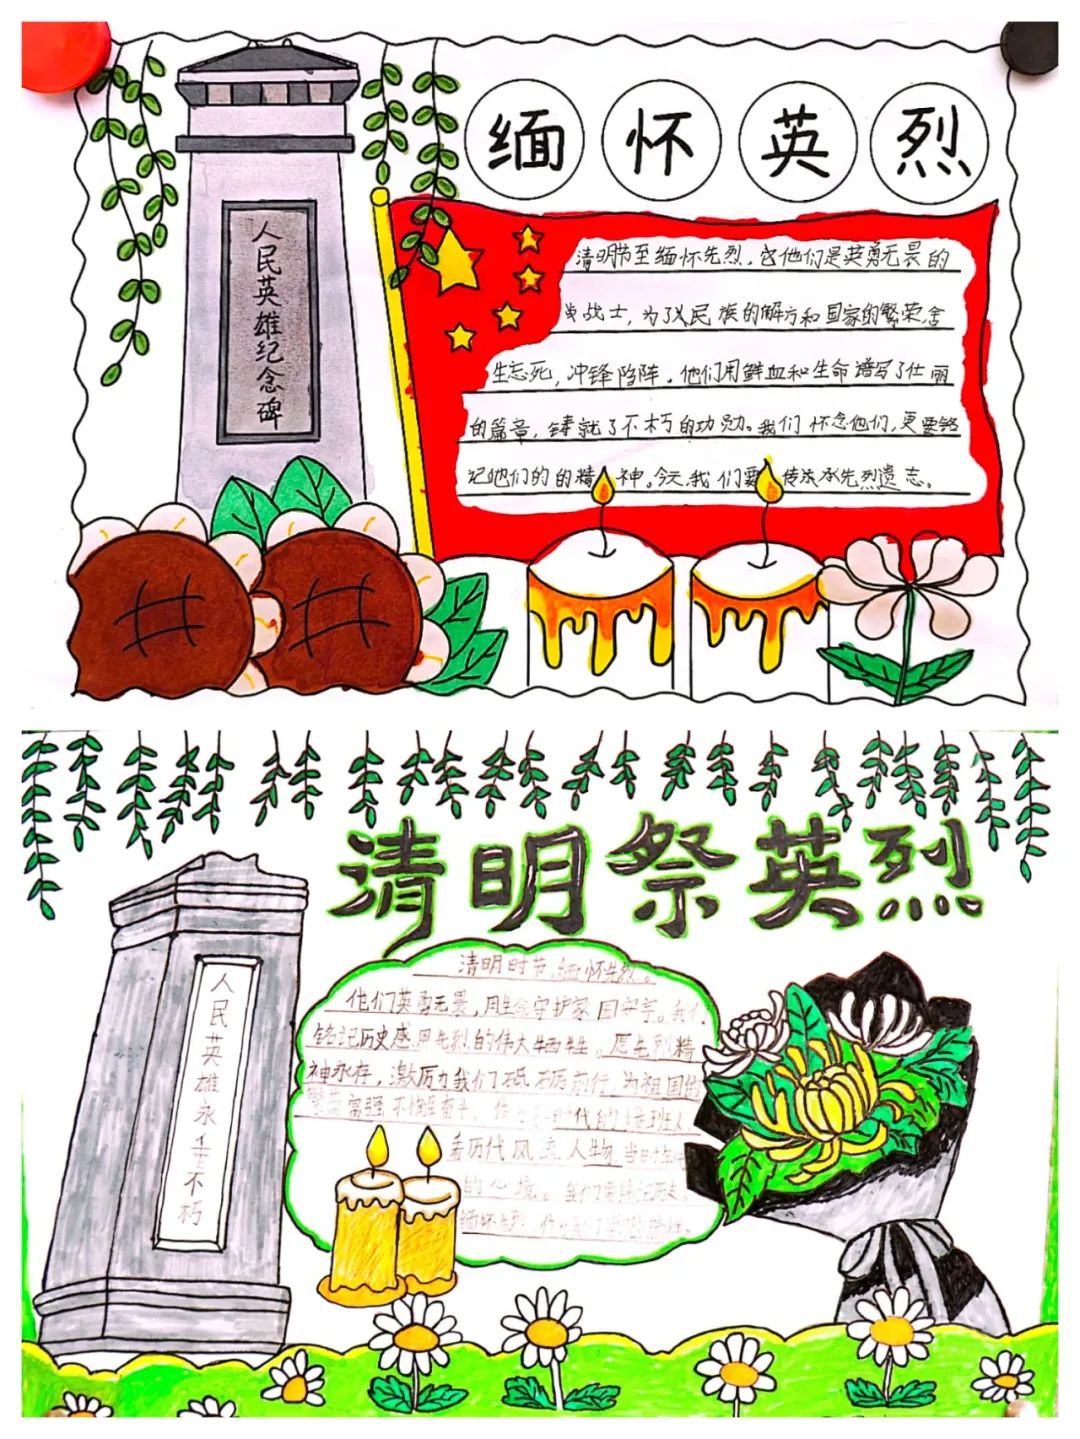 缅怀英烈
人民英雄纪念碑
清明节至缅怀先烈，它他们是英勇无畏的
战士，为了人民族的解方和国家的繁荣舍
生忘死，冲锋陷阵。他们用鲜血和生命谱写了仕丽
的篇章，铸就了不朽的功勋。我们怀念他们，更要铭
记他们的的精神。今天，我们要传承先烈遗志。
清明祭英烈
人民英雄永垂不朽
清明时节，缅怀先烈。
他们英勇无畏，用生命守护家国安宁。我们
铭记历史感恩先烈的伟大牺牲。愿先烈精
神永存，激历力我们砥砺前行，为祖国的
繁荣富强不懈奋斗。
时代的接班人
看历代风流人物
的心境。我们要铭记历史，
缅怀先烈